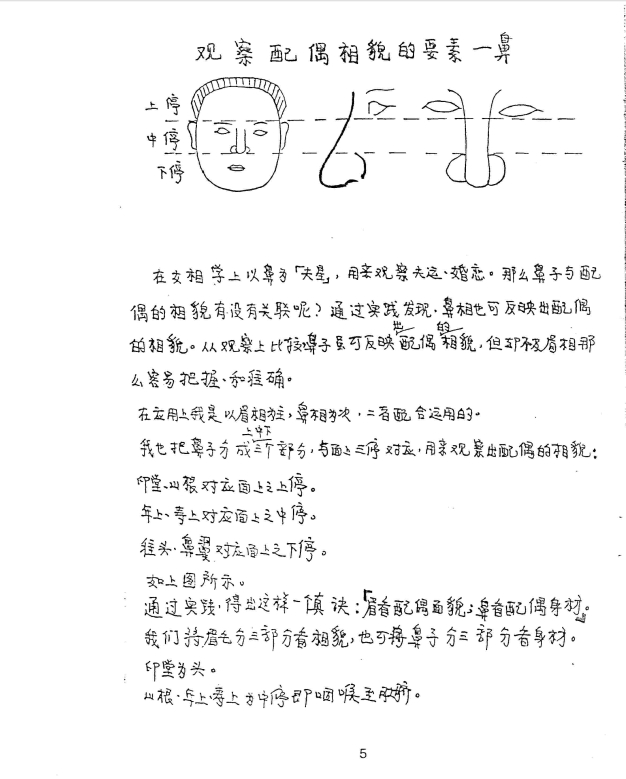 观察配偶相貌的要素一鼻
上停
中停
下停
在女相学上以鼻为「夫星」,用来观察夫运、婚恋。那么鼻子与配
偶的相貌有没有关联呢?通过实践发现,鼻相也可反映出配偶
的相貌。从观察上比较鼻子虽可反映出配偶的相貌,但却不及眉相那
么容易把握、和准确。
在应用上我是以眉相为主,鼻相为次,二者配合运用的。
我也把鼻子分成上中下三个部分,与面上三停对应,用来观察出配偶的相貌:
印堂、山根对应面上之上停。
年上、寿上对应面上之中停。
准头、鼻翼对应面上之下停。
如上图所示。
通过实践,得出这样一真诀:「眉看配偶面貌;鼻看配偶身材。」
我们将眉毛分三部分看相貌,也可将鼻子分三部分看身材。
印堂为头。
山根、年上寿上为中停即咽喉至肚脐。
5